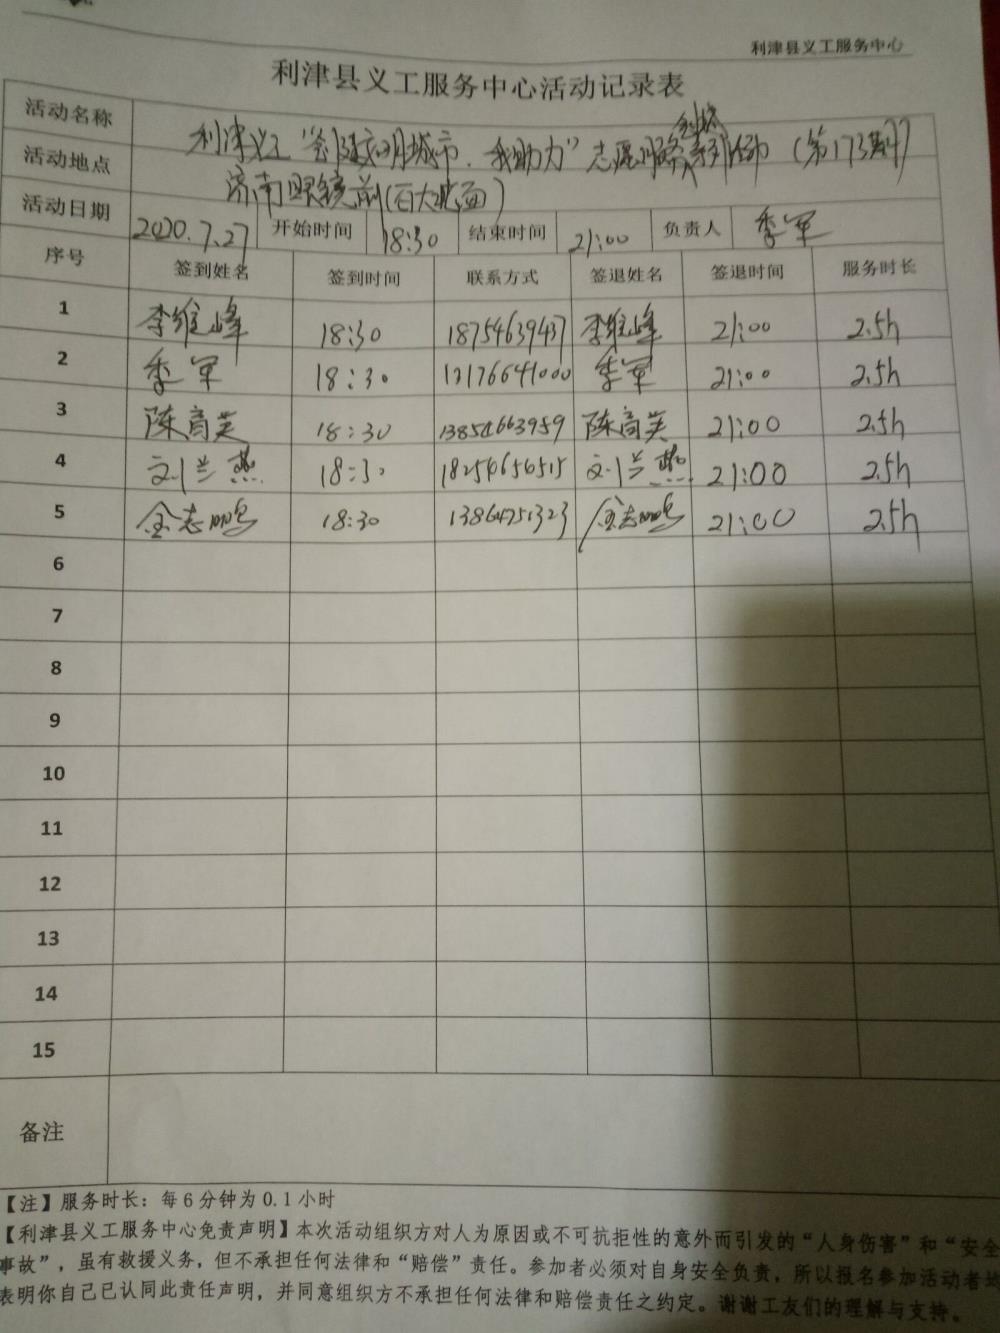 利津县义工服务中心
利津县义工服务中心活动记录表
活动名称 利津义工“创建文明城市，我助力”志愿服务系列活动（第173期）
活动地点 济南眼镜前（百大北面）
活动日期 2020.7.27 开始时间 18:30 结束时间 21:00 负责人 季军
序号 签到姓名 签到时间 联系方式 签退姓名 签退时间 服务时长
1 李维峰 18:30 18754639437 李维峰 21:00 2.5h
2 季军 18:30 季军 21:00 2.5h
3 陈育芙 18:30 13854663959 陈育芙 21:00 2.5h
4 刘兰燕 18:30 18254656515 刘兰燕 21:00 2.5h
5 金志鹏 18:30 13864751323 金志鹏 21:00 2.5h
6
7
8
9
10
11
12
13
14
15
备注
【注】服务时长：每6分钟为0.1小时
【利津县义工服务中心免责声明】本次活动组织方对人为原因或不可抗拒性的意外而引发的“人身伤害”和“安全
事故”，虽有救援义务，但不承担任何法律和“赔偿”责任。参加者必须对自身安全负责，所以报名参加活动者均
表明你自己已认同此责任声明，并同意组织方不承担任何法律和赔偿责任之约定。谢谢工友们的理解与支持。